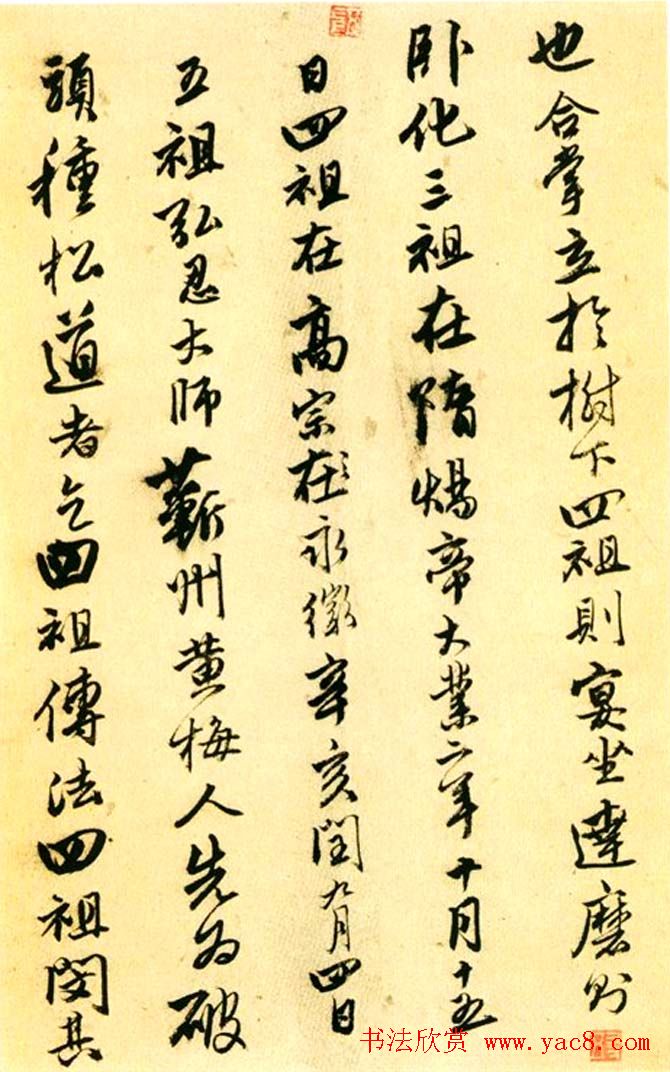 也合掌立於樹下四祖則宴坐達磨則
卧化三祖在隋煬帝大業二年十月十五
日四祖在高宗在永徽辛亥閏九月四日
五祖弘忍大師蘄州黄梅人先為破
頭種松道者乞四祖傳法四祖閔其
书法欣赏 www.yac8.com